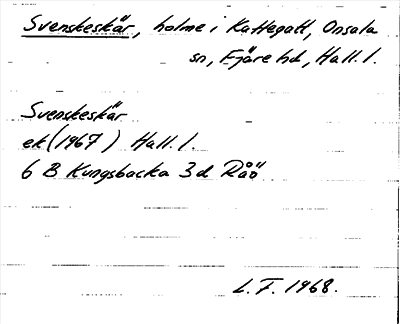 Svenskeskär, holme i Kattegatt, Onsala
sn, Fjäre hd, Hall. l.
Svenskeskär
ek (1967) Hall. l.
6 B Kungsbacka 3d Råö
L. F. 1968.